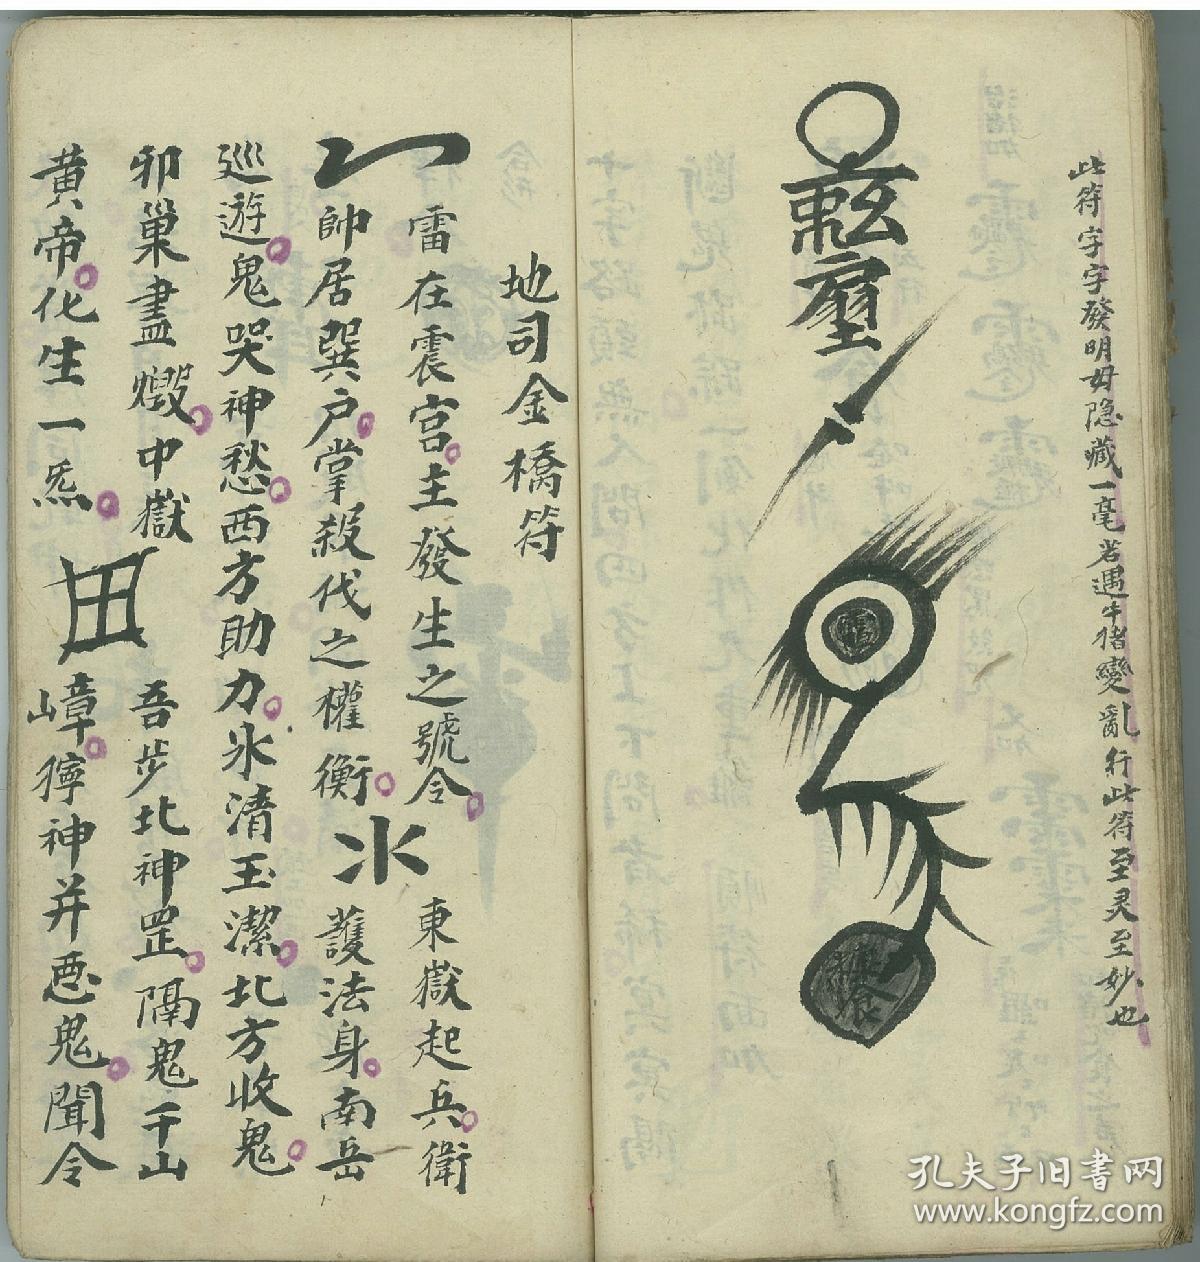 此符字字發明毋隐藏一毫若遇牛猪變亂行此符至灵至妙也
地司金橋符
一雷在震宫主發生之號令
東嶽起兵衛
帥居巽户掌殺伐之權衡
護法身南岳
巡遊鬼哭神愁西方助力氷清玉潔北方收鬼
卯巢盡燬中嶽
吾步北神罡隔鬼千山
黄帝化生一炁
嶂獰神并惡鬼聞令
孔夫子旧书网
www.kongfz.com